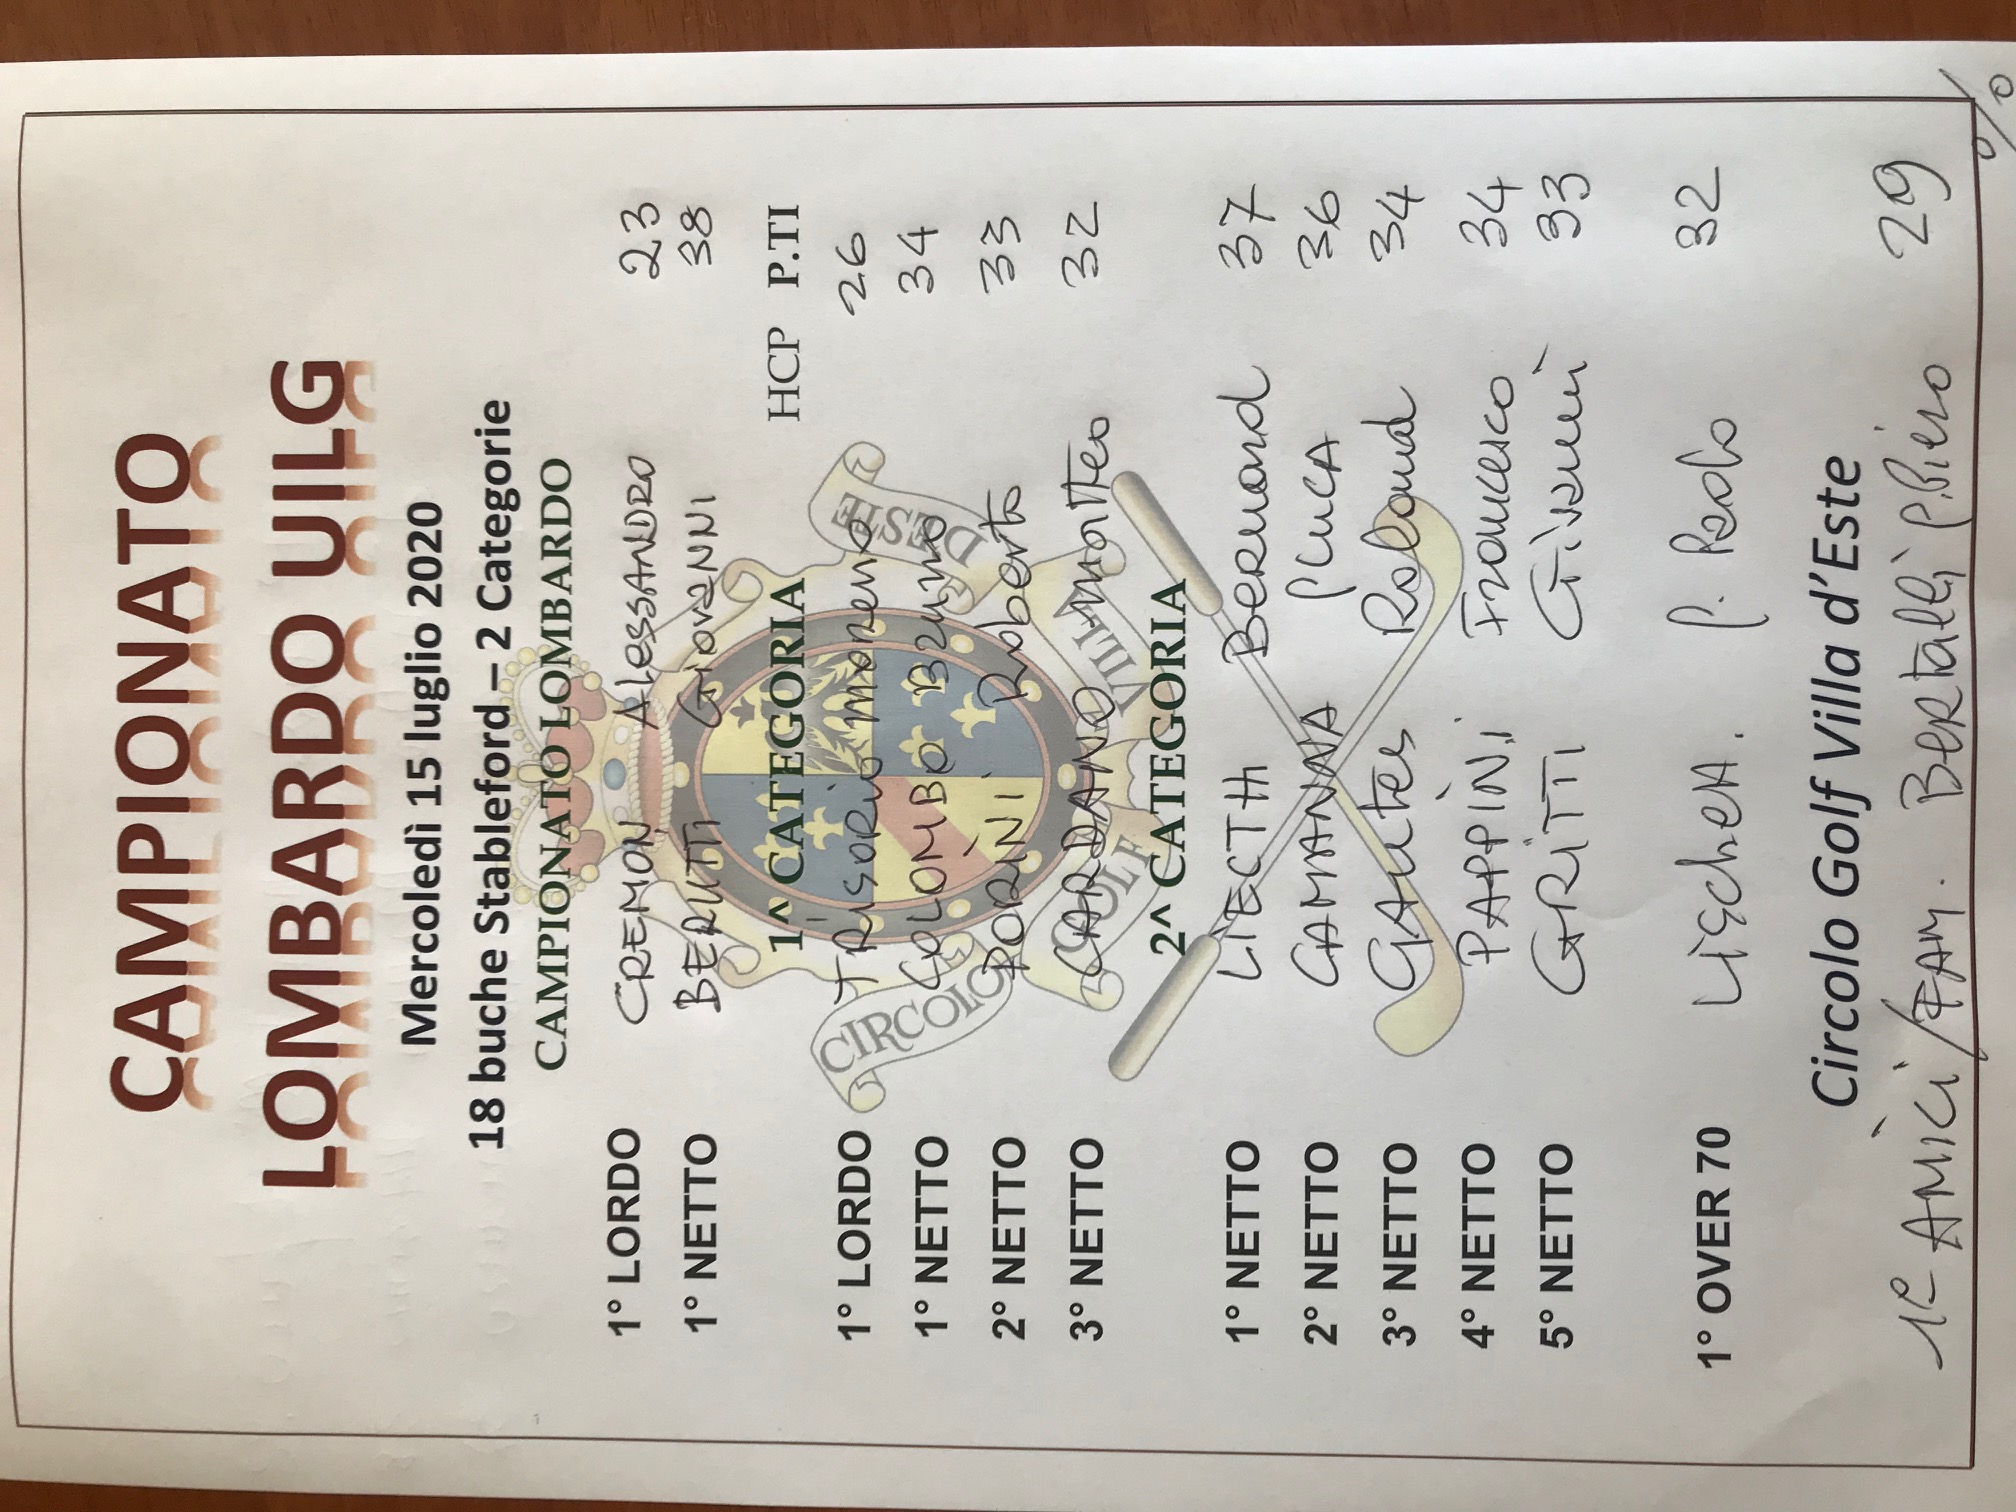 CAMPIONATO
LOMBARDO UILG
Mercoledì 15 luglio 2020
18 buche Stableford – 2 Categorie
CAMPIONATO LOMBARDO
1° LORDO CREMON AlESSANDRO 23
1° NETTO BERUTTI GiovANNI 38
1^ CATEGORIA HCP P.TI
1° LORDO TRiSORiO moreno 26
1° NETTO COLOMBO Bruno 34
2° NETTO PORiNi Roberto 33
3° NETTO CARDANO mATTeo 32
CIRCOLO GOLF VILLA D'ESTE
2^ CATEGORIA
1° NETTO LiECTH Bernard 37
2° NETTO CAMANNA lucA 36
3° NETTO Roland 34
4° NETTO PAPPiNi Francesco 34
5° NETTO GRiTTi Giovanni 33
1° OVER 70 P. Paolo 32
Circolo Golf Villa d'Este
1° AMiCi/FAM. BERtalli P.Piero 29
%